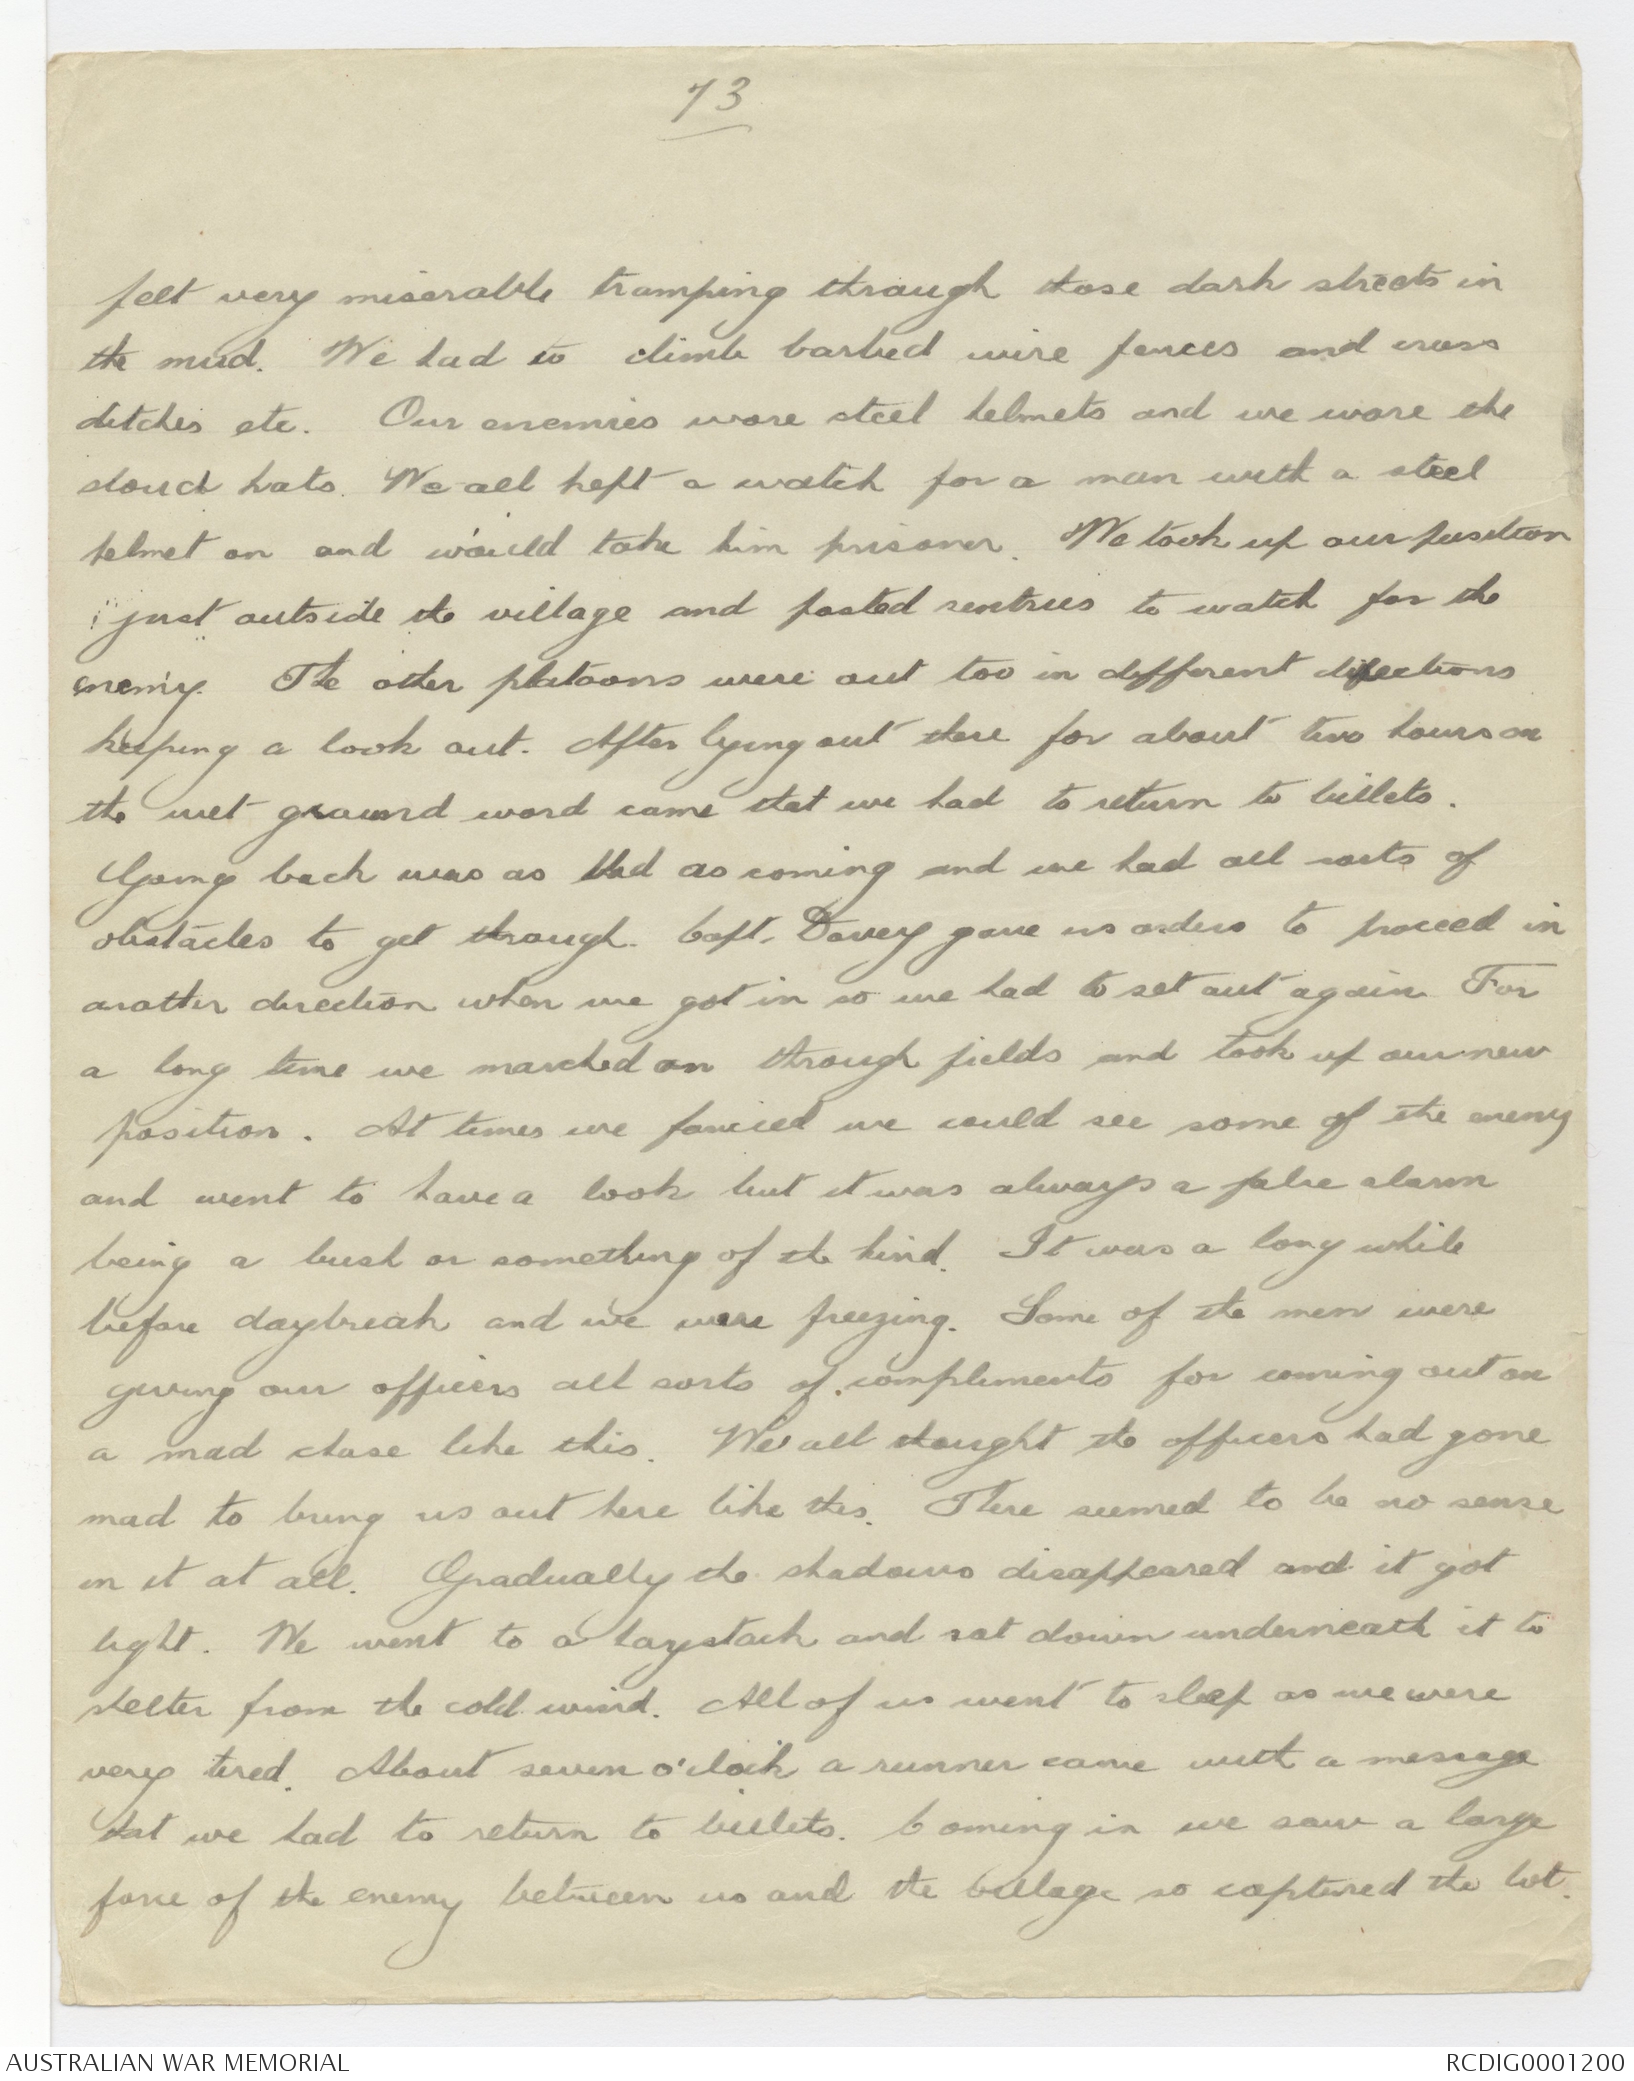 73
felt very miserable tramping through those dark streets in
the mud. We had to climb barbed wire fences and cross
ditches etc. Our enemies wore steel helmets and we wore the
slouch hats. We all kept a watch for a man with a steel
helmet on and would take him prisoner. We took up our position
just outside the village and posted sentries to watch for the
enemy. The other platoons were out too in different directions
keeping a look out. After lying out there for about two hours on
the wet ground word came that we had to return to billets.
Going back was as bad as coming and we had all sorts of
obstacles to get through. Capt. Davey gave us orders to proceed in
another direction when we got in so we had to set out again. For
a long time we marched on through fields and took up our new
position. At times we fancied we could see some of the enemy
and went to have a look but it was always a false alarm
being a bush or something of the kind. It was a long while
before daybreak and we were freezing. Some of the men were
giving our officers all sorts of compliments for coming out on
a mad chase like this. We all thought the officers had gone
mad to bring us out here like this. There seemed to be no sense
in it at all. Gradually the shadows disappeared and it got
light. We went to a haystack and sat down underneath it to
shelter from the cold wind. All of us went to sleep as we were
very tired. About seven o'clock a runner came with a message
that we had to return to billets. Coming in we saw a large
force of the enemy between us and the village so captured the lot.
AUSTRALIAN WAR MEMORIAL
RCDIG0001200